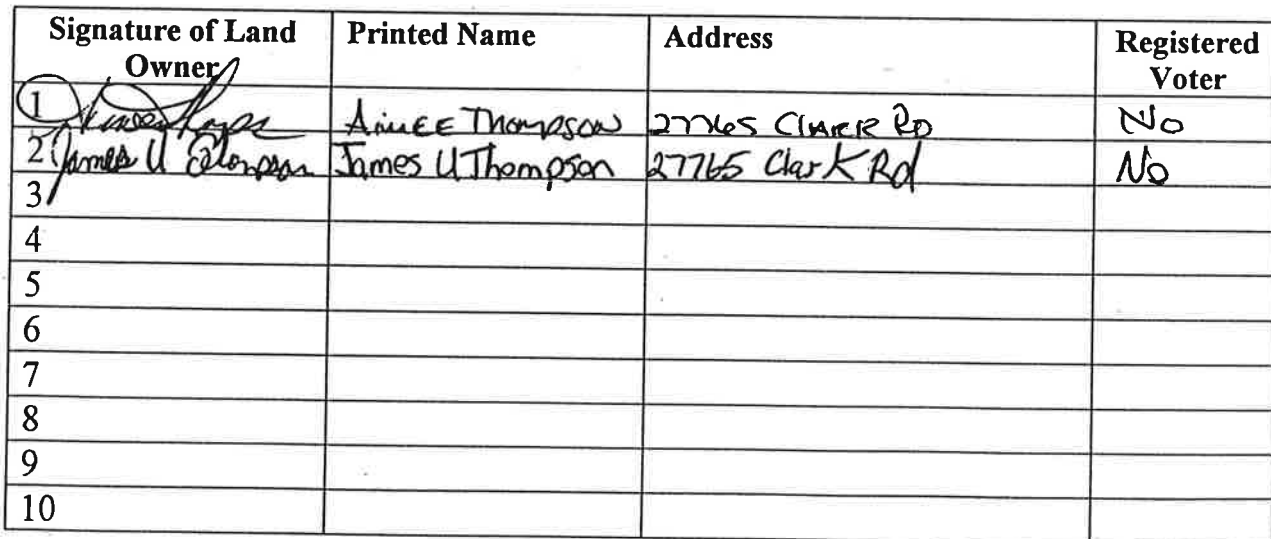 Signature of Land Owner Printed Name Address Registered Voter
1 Aimee Thompson 27765 Clark Rd No
2 James U Thompson James U Thompson 27765 Clark Rd No
3
4
5
6
7
8
9
10